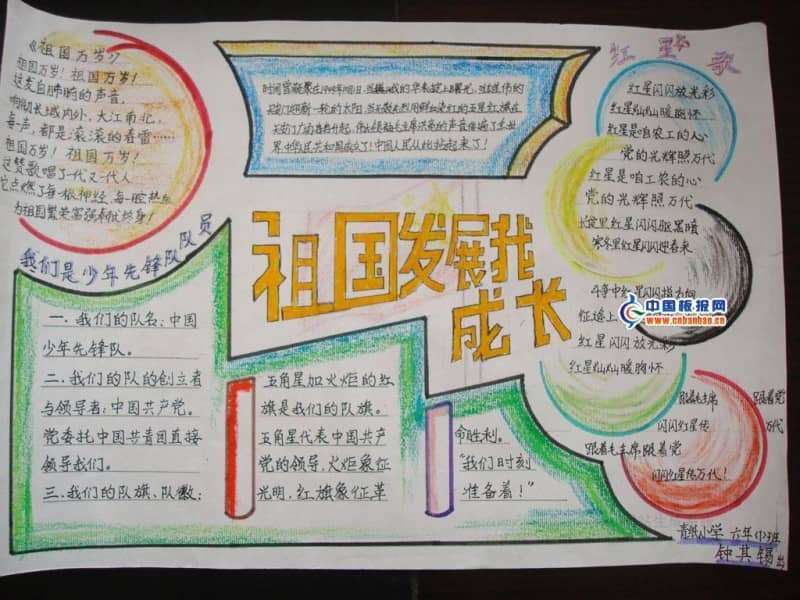 《祖国万岁》
祖国万岁！祖国万岁！
这发自肺腑的声音，
响彻长城内外，大江南北，
每一声，都是滚滚的春雷……
祖国万岁！祖国万岁！
这赞歌唱了一代又一代人
它点燃了每一根神经，每一腔热血
为祖国繁荣富强奋忧终身！
界，中华人民共和国成立了！中国人民从此站起来了！
红星歌
红星闪闪放光彩
红星灿灿暖胸怀
红星是咱农工的人心
党的光辉照万代
红星是咱工农的心
党的光辉照万代
长夜里红星闪闪驱黑暗
寒冬里红星闪闪迎春来
斗争中红星闪闪指方向
征途上
红星闪闪放光彩
红星灿灿暖胸怀
跟着毛主席
跟着党
闪闪红星传
万代
跟着毛主席跟着党
闪闪红星传万代！
中国板报网
www.cnbanbao.cn
祖国发展我
成长
我们是少年先锋队队员
一、我们的队名：中国
少年先锋队。
二、我们的队的创立者
与领导者：中国共产党。
党委托中国共青团直接
领导我们。
三、我们的队旗、队徽：
五角星加火炬的红
旗是我们的队旗。
五角星代表中国共产
党的领导，火炬象征
光明，红旗象征革
命胜利。
“我们时刻
准备着！”
小学 六年(1)班
钟其锡